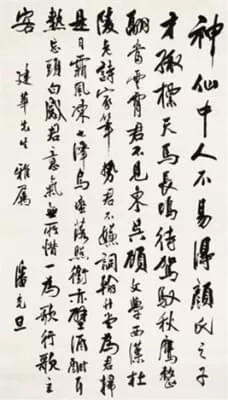 神仙中人不易得顏氏之子
才孤標天馬長鳴待駕馭秋鷹整
翮當雲霄君不見東吳顧文學西漢杜
陵老詩家筆勢君不嫌詞翰升堂為君掃
是日霜風凍七澤烏蠻落照銜赤壁酒酣耳
熱忘頭白感君意氣無所惜一為歌行歌主
客
建華先生雅屬
潘光旦